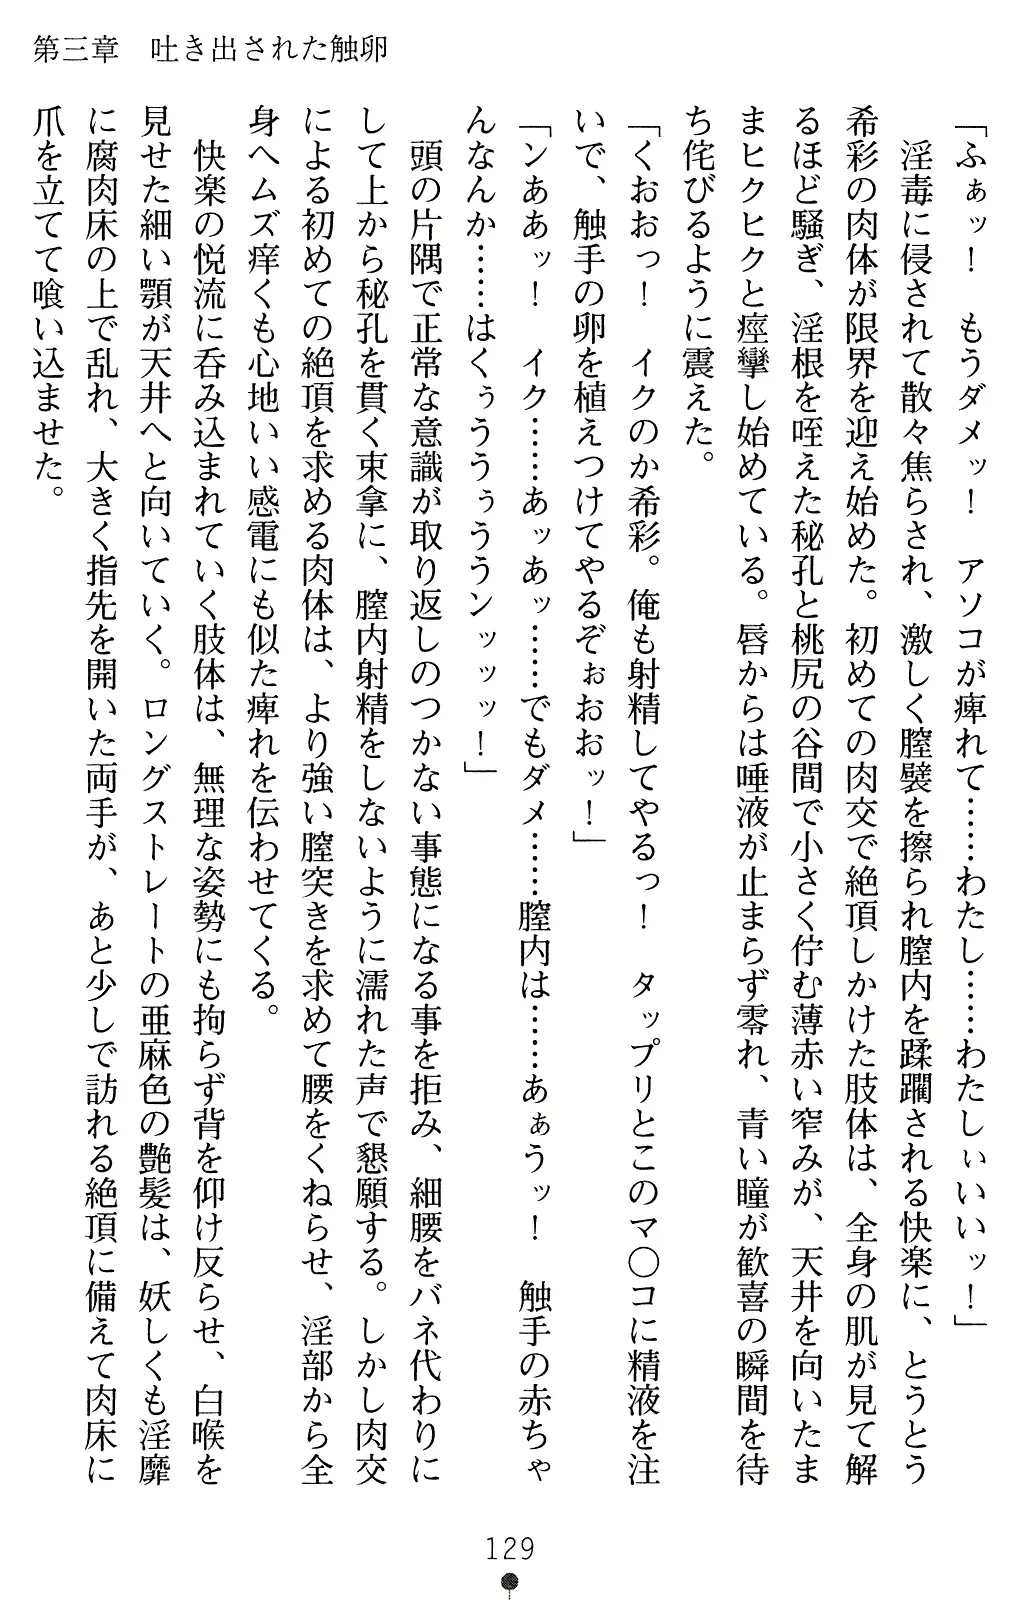 第三章　吐き出された触卵
「ふぁッ！　もうダメッ！　アソコが痺れて……わたし……わたしぃいいッ！」
　淫毒に侵されて散々焦らされ、激しく膣襞を擦られ膣内を蹂躙される快楽に、とうとう
希彩の肉体が限界を迎え始めた。初めての肉交で絶頂しかけた肢体は、全身の肌が見て解
るほど騒ぎ、淫根を咥えた秘孔と桃尻の谷間で小さく佇む薄赤い窄みが、天井を向いたま
まヒクヒクと痙攣し始めている。唇からは唾液が止まらず零れ、青い瞳が歓喜の瞬間を待
ち侘びるように震えた。
「くおおっ！　イクのか希彩。俺も射精してやるっ！　タップリとこのマ〇コに精液を注
いで、触手の卵を植えつけてやるぞぉおおッ！」
「ンああッ！　イク……あッあッ……でもダメ……膣内は……あぁうッ！　触手の赤ちゃ
んなんか……はくぅううぅううンッッッ！」
　頭の片隅で正常な意識が取り返しのつかない事態になる事を拒み、細腰をバネ代わりに
して上から秘孔を貫く束拿に、膣内射精をしないように濡れた声で懇願する。しかし肉交
による初めての絶頂を求める肉体は、より強い膣突きを求めて腰をくねらせ、淫部から全
身へムズ痒くも心地いい感電にも似た痺れを伝わせてくる。
　快楽の悦流に呑み込まれていく肢体は、無理な姿勢にも拘らず背を仰け反らせ、白喉を
見せた細い顎が天井へと向いていく。ロングストレートの亜麻色の艶髪は、妖しくも淫靡
に腐肉床の上で乱れ、大きく指先を開いた両手が、あと少しで訪れる絶頂に備えて肉床に
爪を立てて喰い込ませた。
129